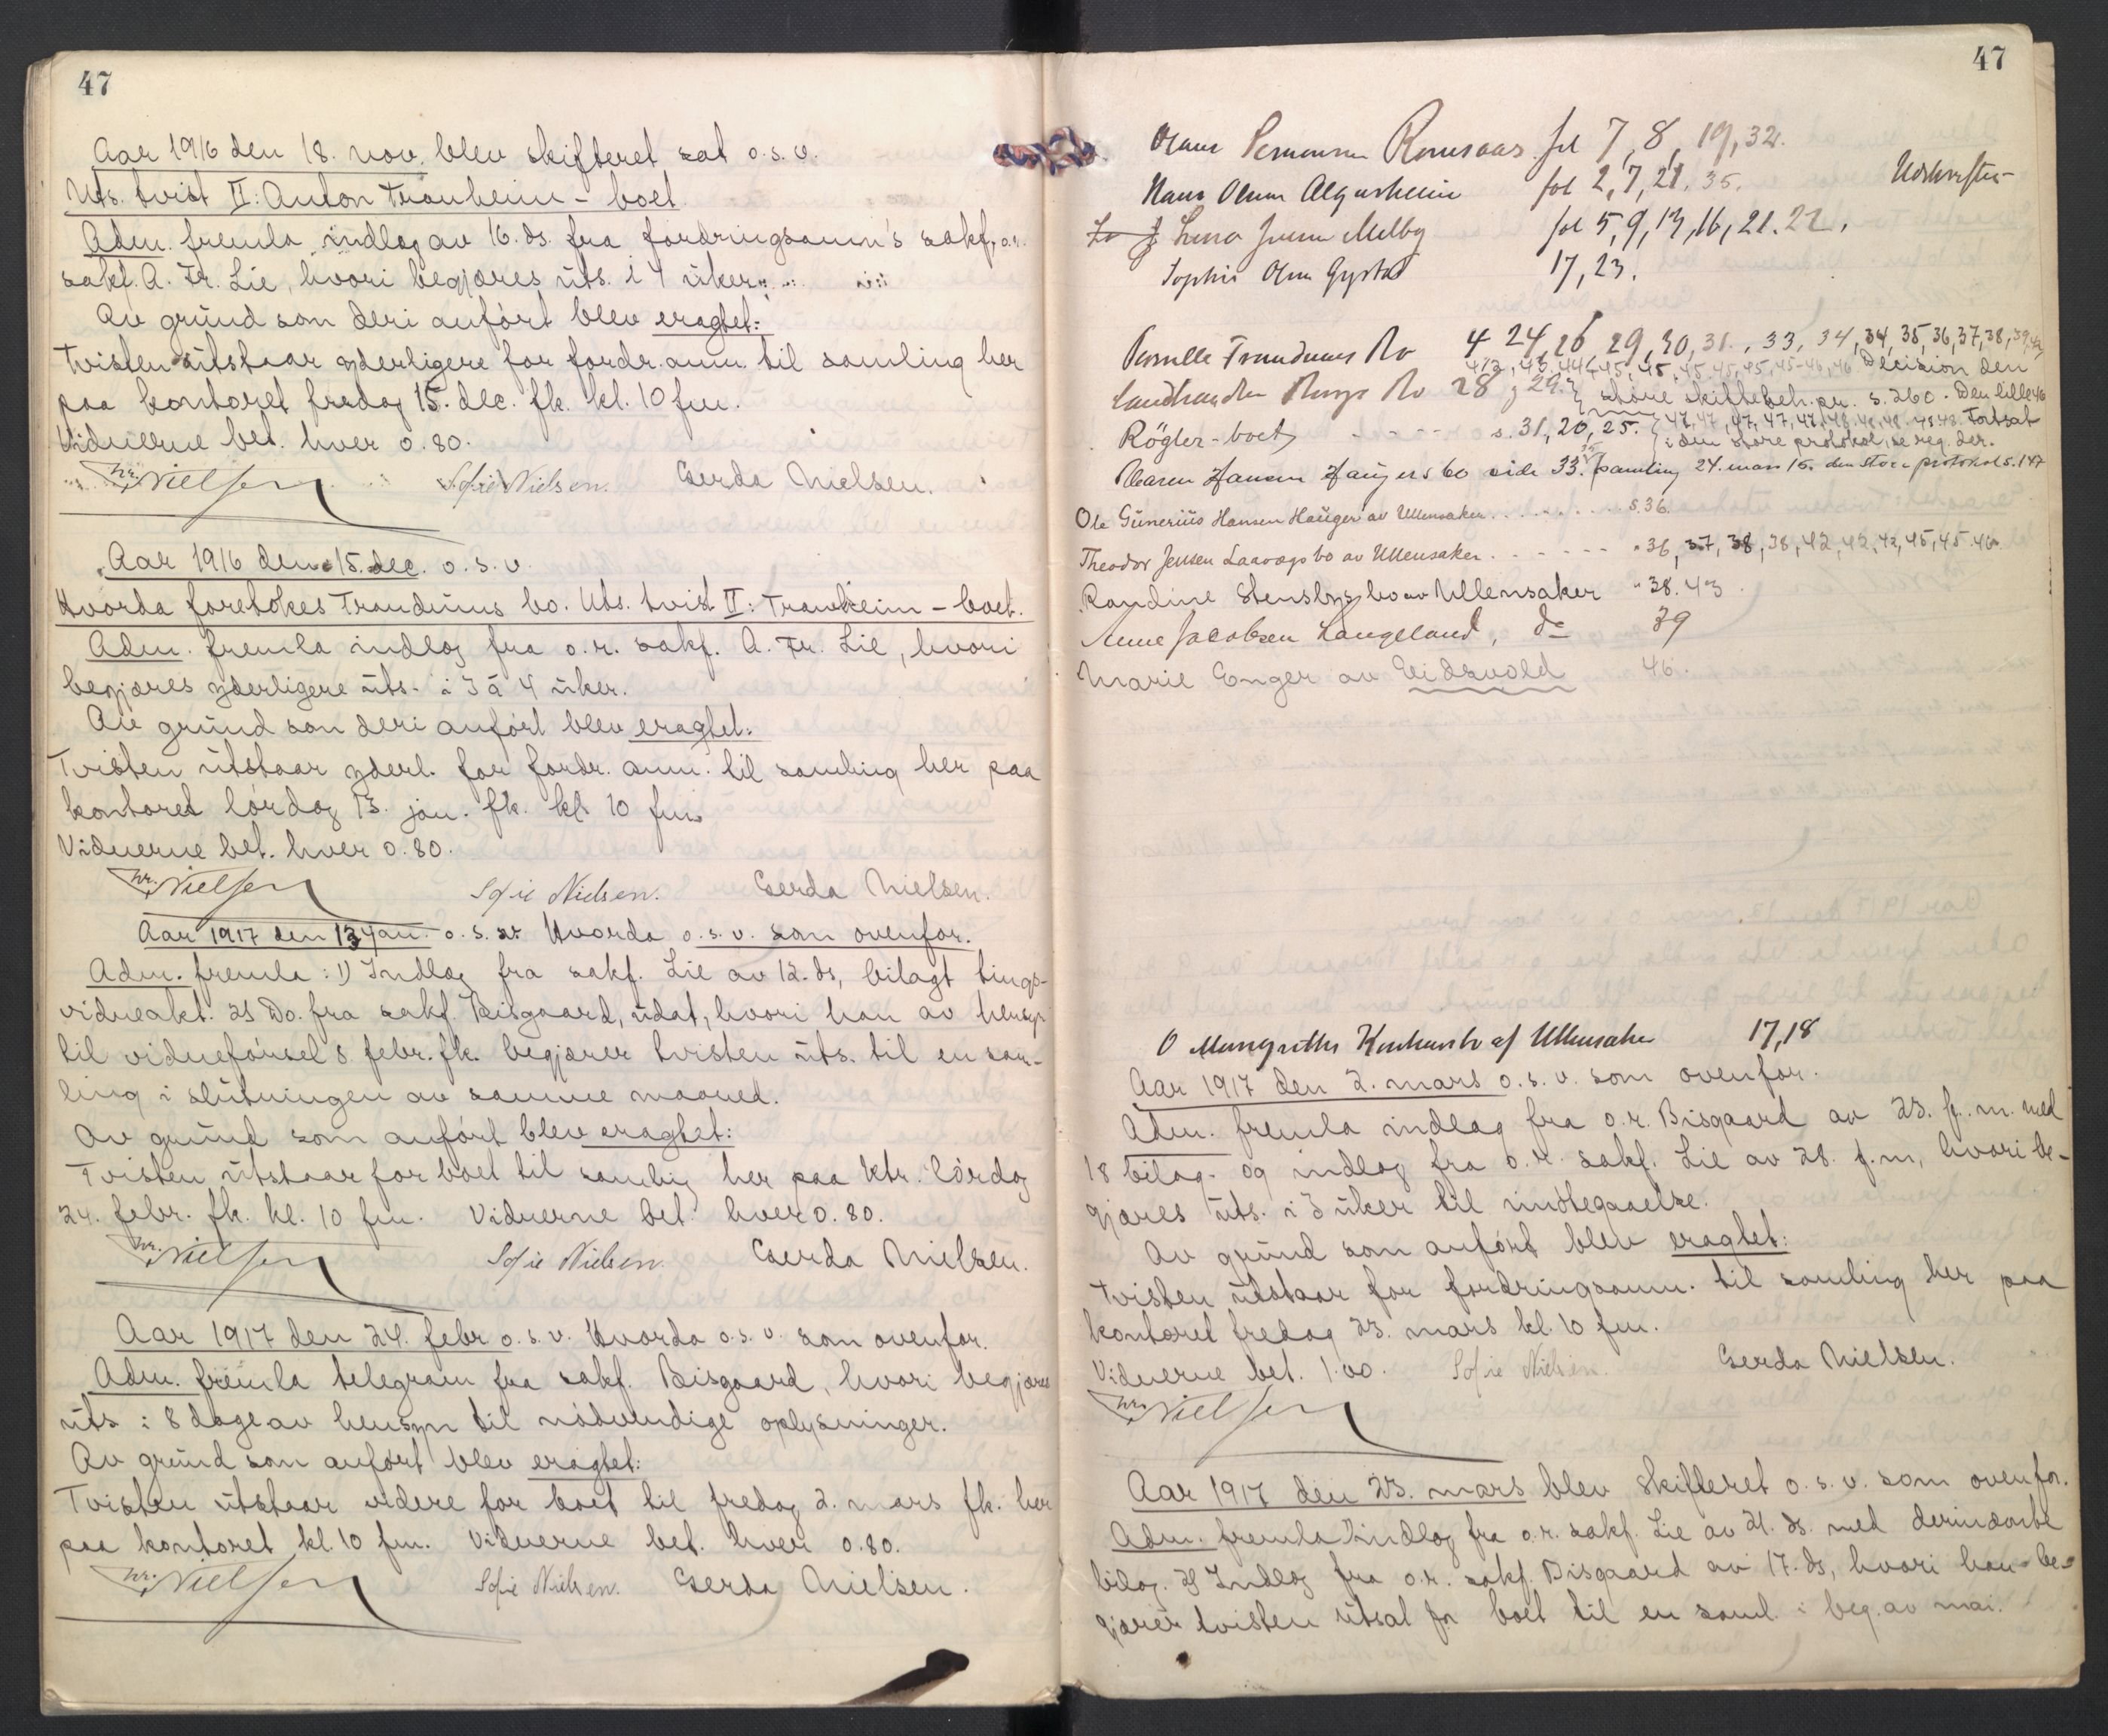 47
Aar 1916 den 18. nov. blev skifteret sat o.s.v.
Uts. tvist II: Anton Trandheim - boet.
Adm. fremla indlæg av 16. ds. fra fordringsanm's sakf, o.r.
sakf. A. Fr. Lie, hvori begjæres uts. i 4 uker.
Av grund som deri anført blev eragtet:
Tvisten utstaar yderligere for fordr. anm. til samling her
paa kontoret fredag 15. dec. fk. kl. 10 fm.
Vidnerne bet. hver 0.80.
Nielsen Sofie Nielsen. Gerda Nielsen.
Aar 1916 den 15. dec. o.s.v.
Hvorda foretokes Trandums bo. Uts. tvist II: Trandheim - boet.
Adm. fremla indlæg fra o.r. sakf. A. Fr. Lie, hvori
begjæres yderligere uts. i 3 á 4 uker.
Av grund som deri anført blev eragtet:
Tvisten utstaar yderl. for fordr. anm. til samling her paa
kontoret lørdag 13. jan. fk. kl. 10 fm.
Vidnerne bet. hver 0.80.
Nielsen Sofie Nielsen. Gerda Nielsen.
Aar 1917 den 13 jan. o.s.v. Hvorda o.s.v. som ovenfor.
Adm. fremla: 1) Indlæg fra sakf. Lie av 12. ds, bilagt tings-
vidneakt. 2) Do. fra sakf. Bisgaard, udat, hvori han av hensyn
til vidneførsel 8 febr. fk. begjærer tvisten uts. til en sam-
ling i slutningen av samme maaned.
Av grund som anført blev eragtet:
Tvisten utstaar for boet til samling her paa ktr. lørdag
24. febr. fk. kl. 10 fm. Vidnerne bet. hver 0.80.
Nielsen Sofie Nielsen. Gerda Nielsen.
Aar 1917 den 24. febr o.s.v. Hvorda o.s.v. som ovenfor.
Adm. fremla telegram fra sakf. Bisgaard, hvori begjæres
uts i 8 dage av hensyn til nødvendige oplysninger.
Av grund som anført blev eragtet:
Tvisten utstaar videre for boet til fredag 2. mars fk. her
paa kontoret kl. 10 fm. Vidnerne bet. hver 0.80.
Nielsen Sofie Nielsen. Gerda Nielsen.
47
Olaus Romsaas fol 7, 8, 19, 32.
Hans Olsen Algarheim fol 2, 7, 21. 35. Udskrifter
Melby fol 5, 9, 13, 16, 21. 22.
Sophie Olsen Gystad 17, 23.
Pernille Trandums Bo 4 24, 26 29, 30, 31, 33, 34, 34, 35, 36, 37, 38, 39
Decision den
Landhandler Bo 28 g 29. store skiftebeh.pr. s. 260. Den lille
Røgler-boet s. 31, 20, 25. Fortsat
i den store protokol, se reg. der.
Maren Hansen Haugers bo side 33. samling 24. mars 15. den store protokol s. 147
Ole Gunerius Hansen Hauger av Ullensaker. s. 36.
Theodor Jensen Laavegs bo av Ullensaker. " 36, 37, 38, 38, 42, 42, 42, 45, 45. 46.
Randine Stensbys bo av Ullensaker " 38. 43
Anne Jacobsen Langeland, do 39
Marie Enger av Eidsvold 46.
O Konkursbo af Ullensaker 17, 18
Aar 1917 den 2. mars o.s.v. som ovenfor.
Adm. fremla indlæg fra o.r. Bisgaard av 23. f.m. med
18 bilag. og indlæg fra o.r. sakf. Lie av 28. f.m, hvori be-
gjæres uts. i 3 uker til imøtegaaelse.
Av grund som anført blev eragtet:
Tvisten utstaar for fordringsanm. til samling her paa
kontoret fredag 23. mars kl. 10 fm.
Vidnerne bet. 1.00. Sofie Nielsen. Gerda Nielsen.
Nielsen
Aar 1917 den 23. mars blev skifteret o.s.v. som ovenfor.
Adm. fremla 1) indlæg fra o.r. sakf. Lie av 21. ds. med derindarte
bilag. 2) Indlæg fra o.r. sakf. Bisgaard av 17. ds, hvori han be-
gjærer tvisten utsat for boet til en saml. i beg. av mai.